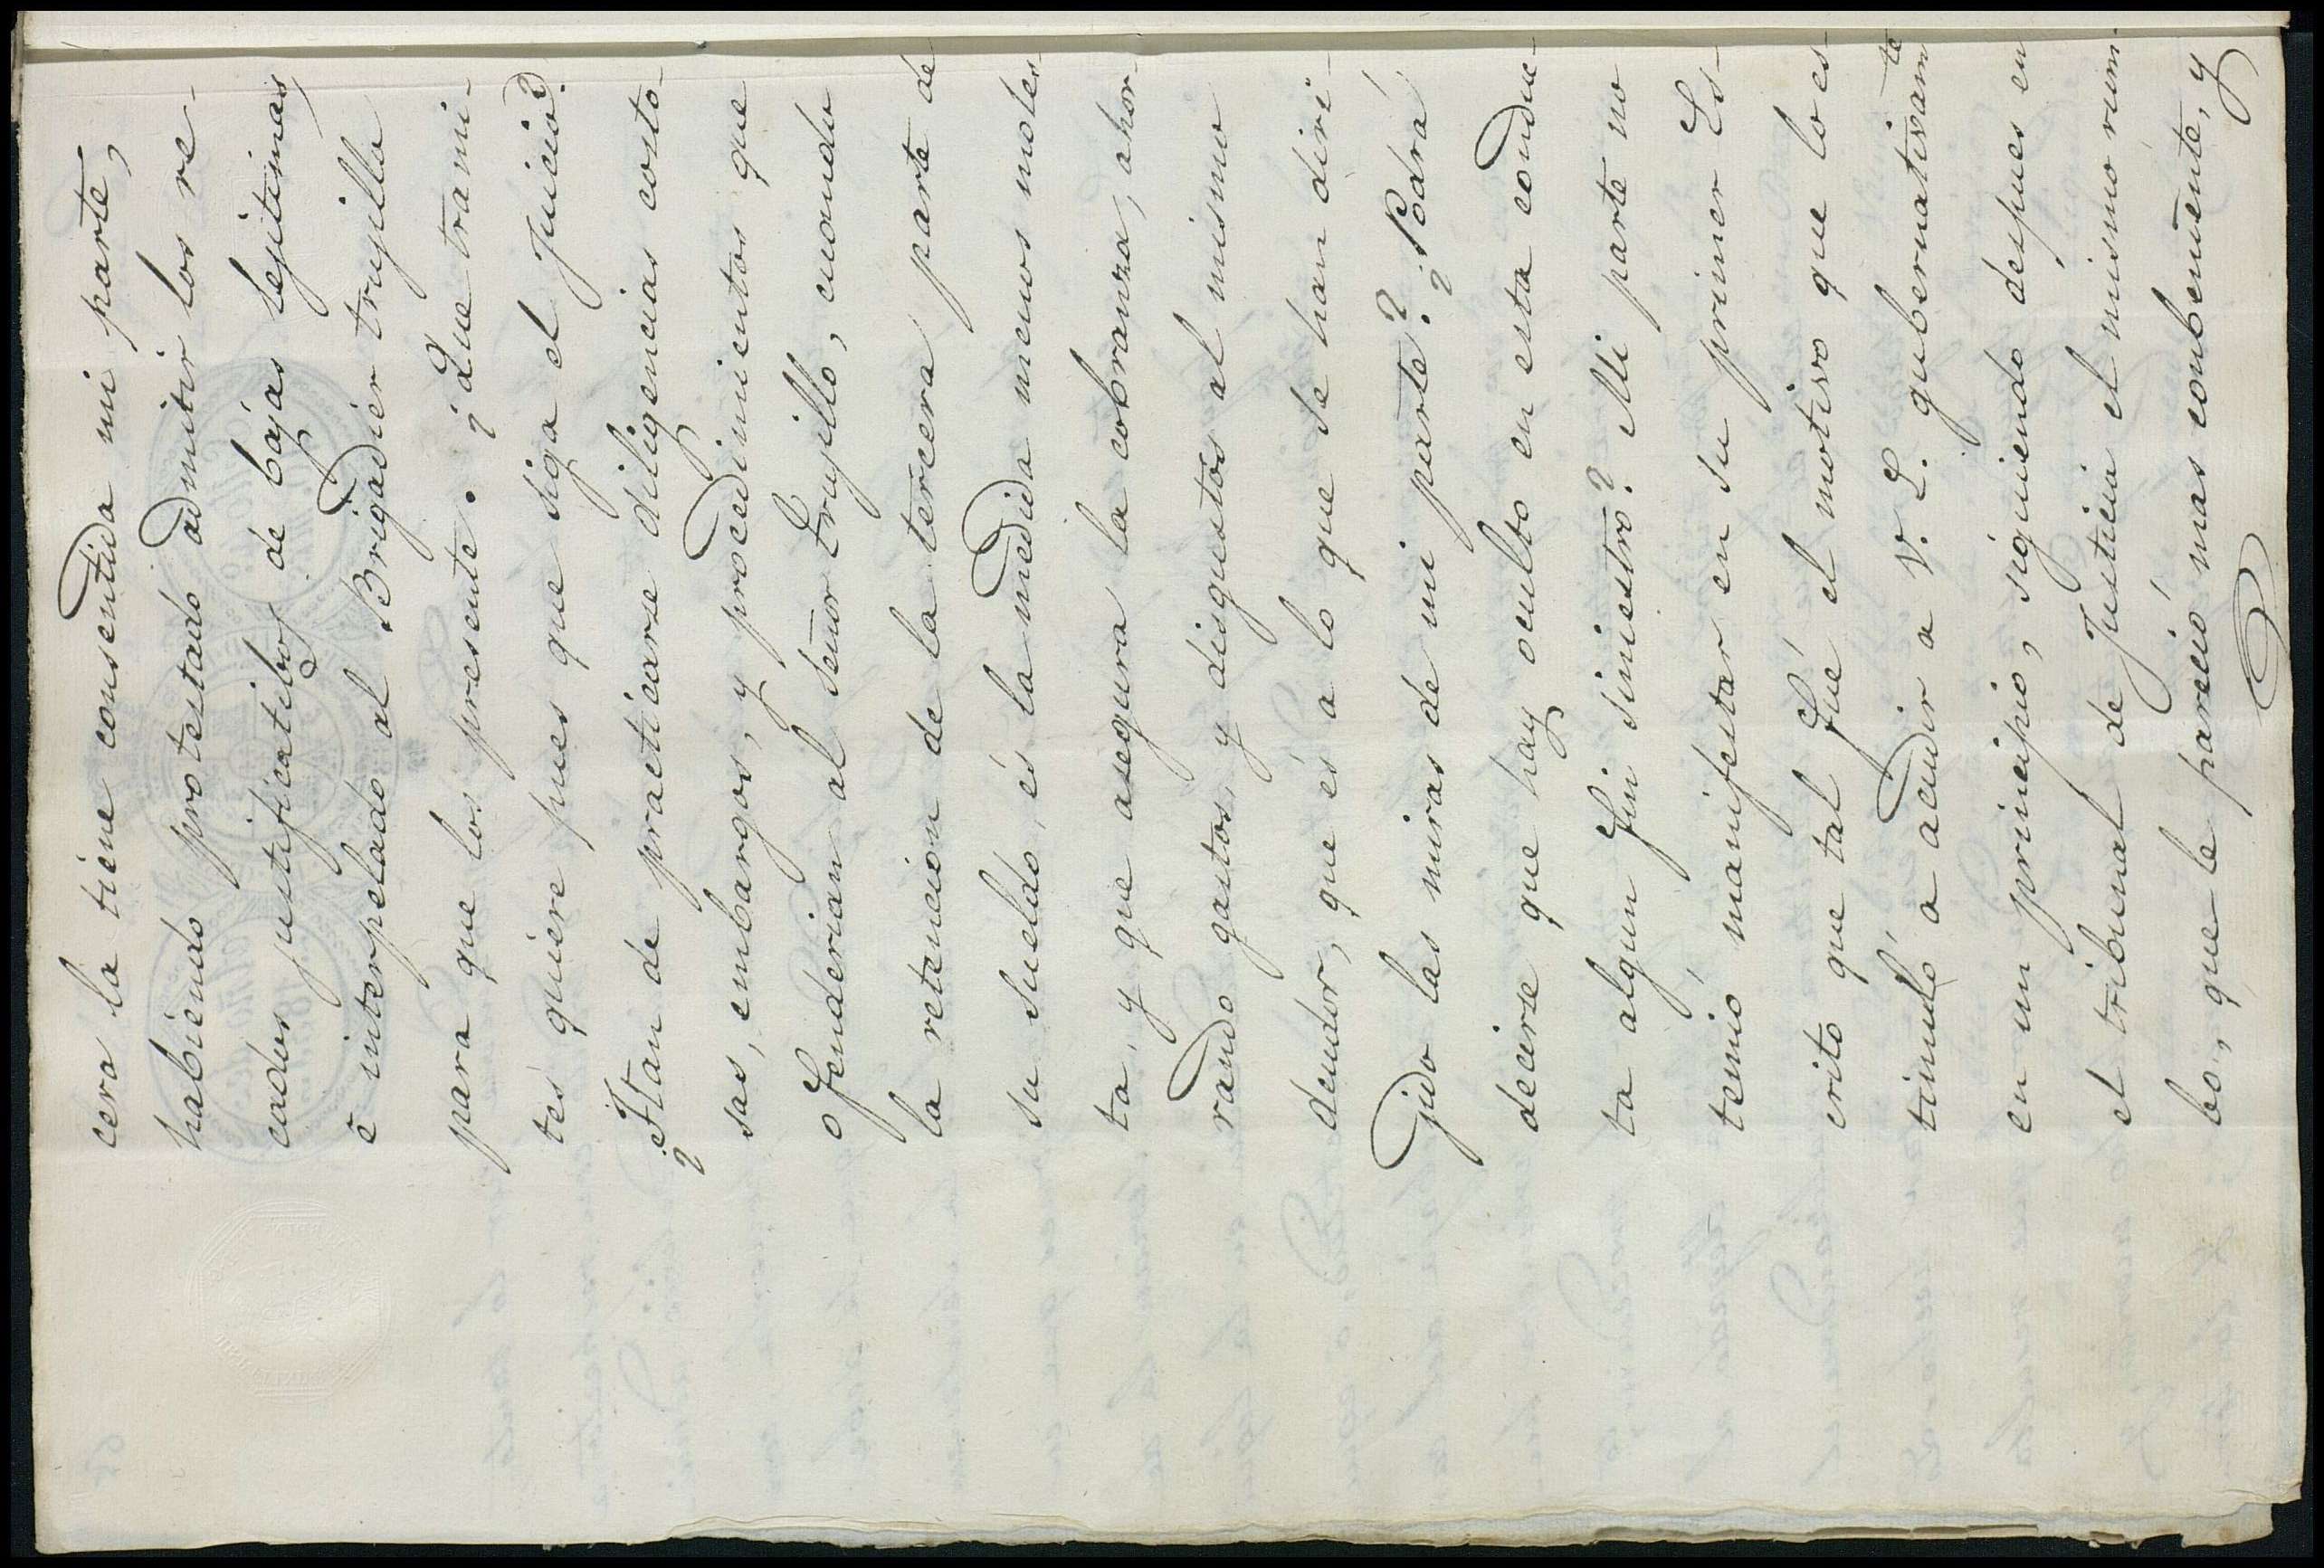 cera la tiene consentida mi parte,
habiendo protestado admitir los re-
cados justificatibos de bajas lejitimas
è interpelado al Brigadier trujillo
para que los presente. ¿Que trami-
tes quiere pues que siga el Juicio?
¿Han de practicarse diligencias costo-
sas, embargos, y procedimientos que
ofenderian al señor Trujillo, cuando
la retencion de la tercera parte de
su sueldo, és la medida menos moles-
ta, y que asegura la cobranza, ahor-
rando gastos, y disgustos al mismo
deudor, que és a lo que se han diri-
jido las miras de mi parte? ¿Podrá
decirse que hay oculto en esta conduc-
ta algun fin siniestro? Mi parte no
temió manifestar en su primer Es-
crito que tal fué el motivo que lo es-
timuló a acudir a V. E. gubernativamte
en un principio, siguiendo despues en
el tribunal de Justicia el mismo rum-
bo, que le pareció mas combeniente, y